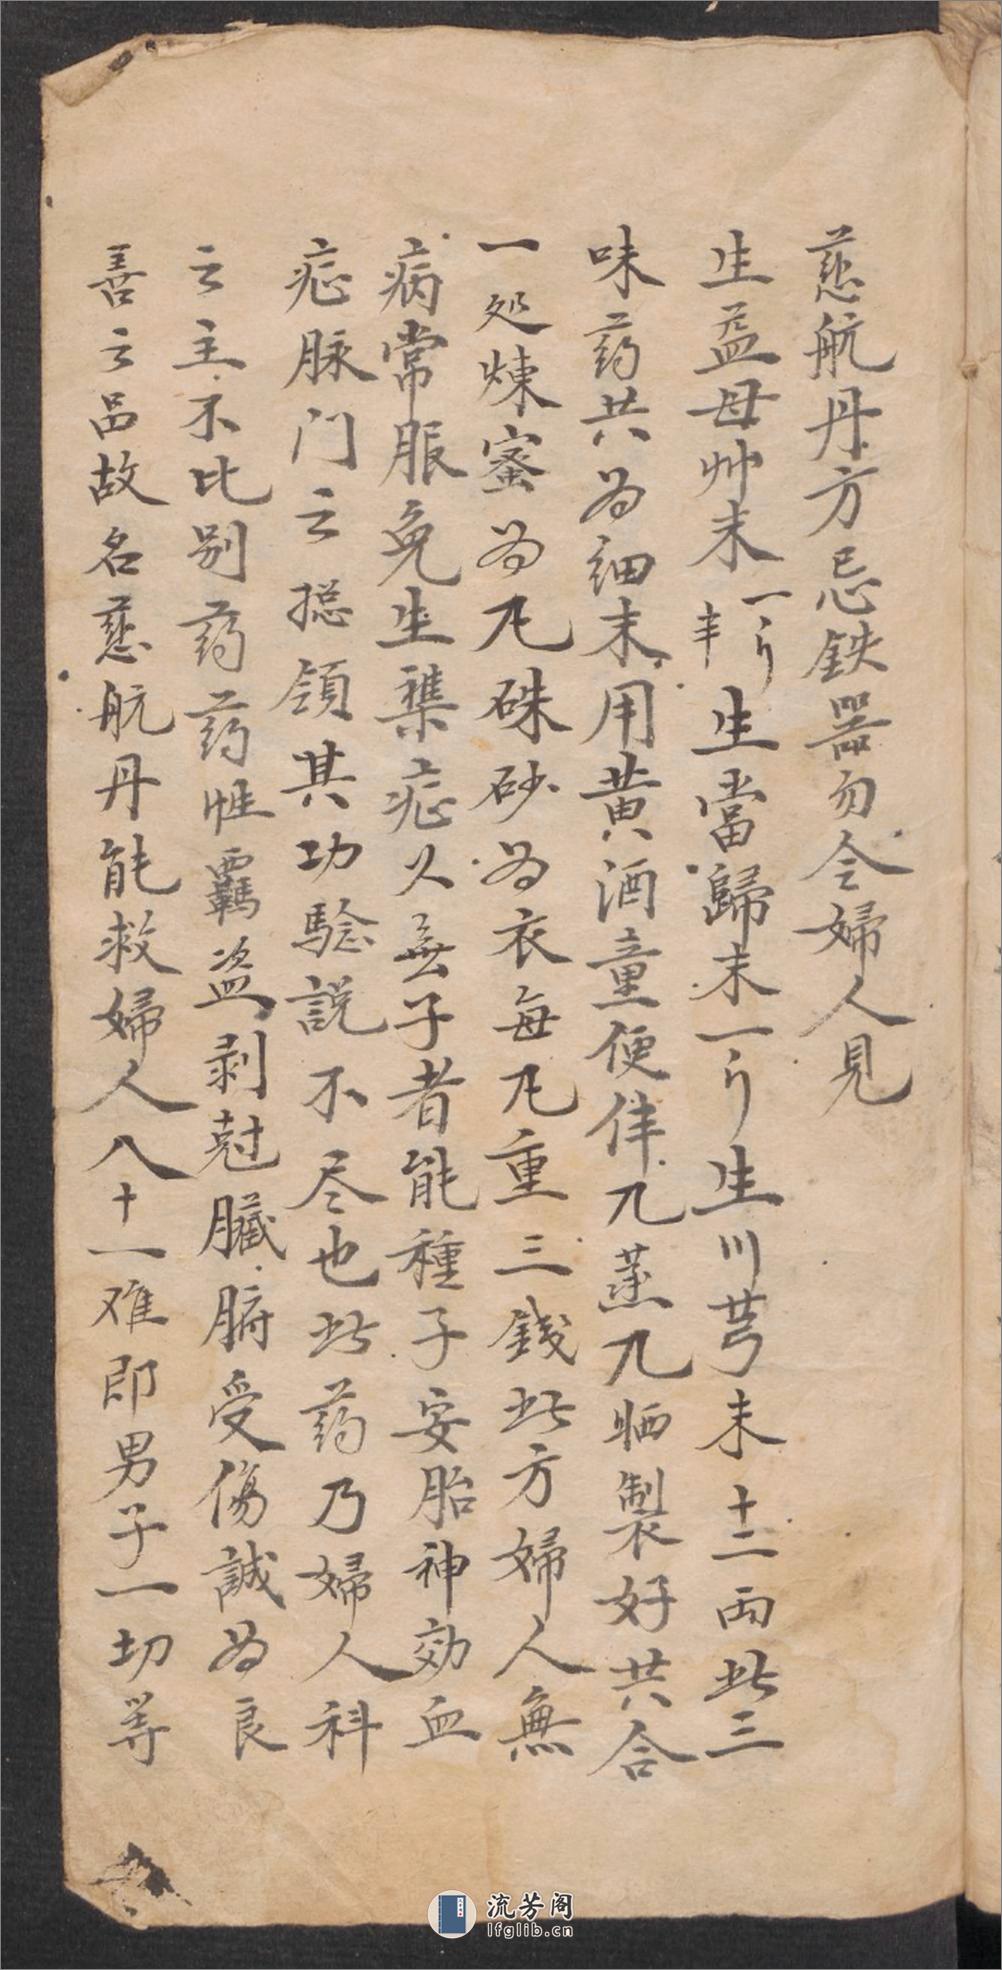 慈航丹方忌鉄器勿令婦人見
生益母艸末一斤半生當歸末一斤生川芎末十二両此三
味药共为细末用黄酒童便伴九蒸九晒製好共合
一处煉蜜为丸硃砂为衣每丸重三錢此方婦人無
病常服免生襍症久无子者能種子安胎神効血
症脉门云摠領其功騐説不尽也此药乃婦人科
云主不比别药药性覇盗剥尅臟腑受傷誠为良
善云品故名慈航丹能救婦人八十一难即男子一切等
流芳阁
lfglib.cn